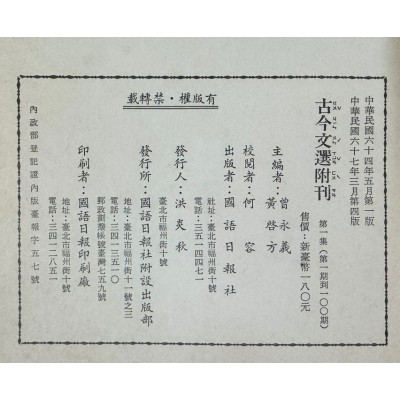 中華民國六十四年五月第一版
中華民國六十七年三月第四版
古今文選附刊
第一集（第一期到一〇〇期）
售價：新臺幣一八〇元
主編者：曾永義
黃啓方
校閱者：何容
出版者：國語日報社
社址：臺北市福州街十號
電話：三五一四四七一
發行人：洪炎秋
臺北市福州街十號
發行所：國語日報社附設出版部
地址：臺北市福州街十一號之三
電話：三四一三五一〇
郵政劃撥帳號臺灣七五九號
印刷者：國語日報印刷廠
地址：臺北市福州街十號
電話：三四一二八五一
內政部登記證內版臺報字五七號
有版權・禁轉載